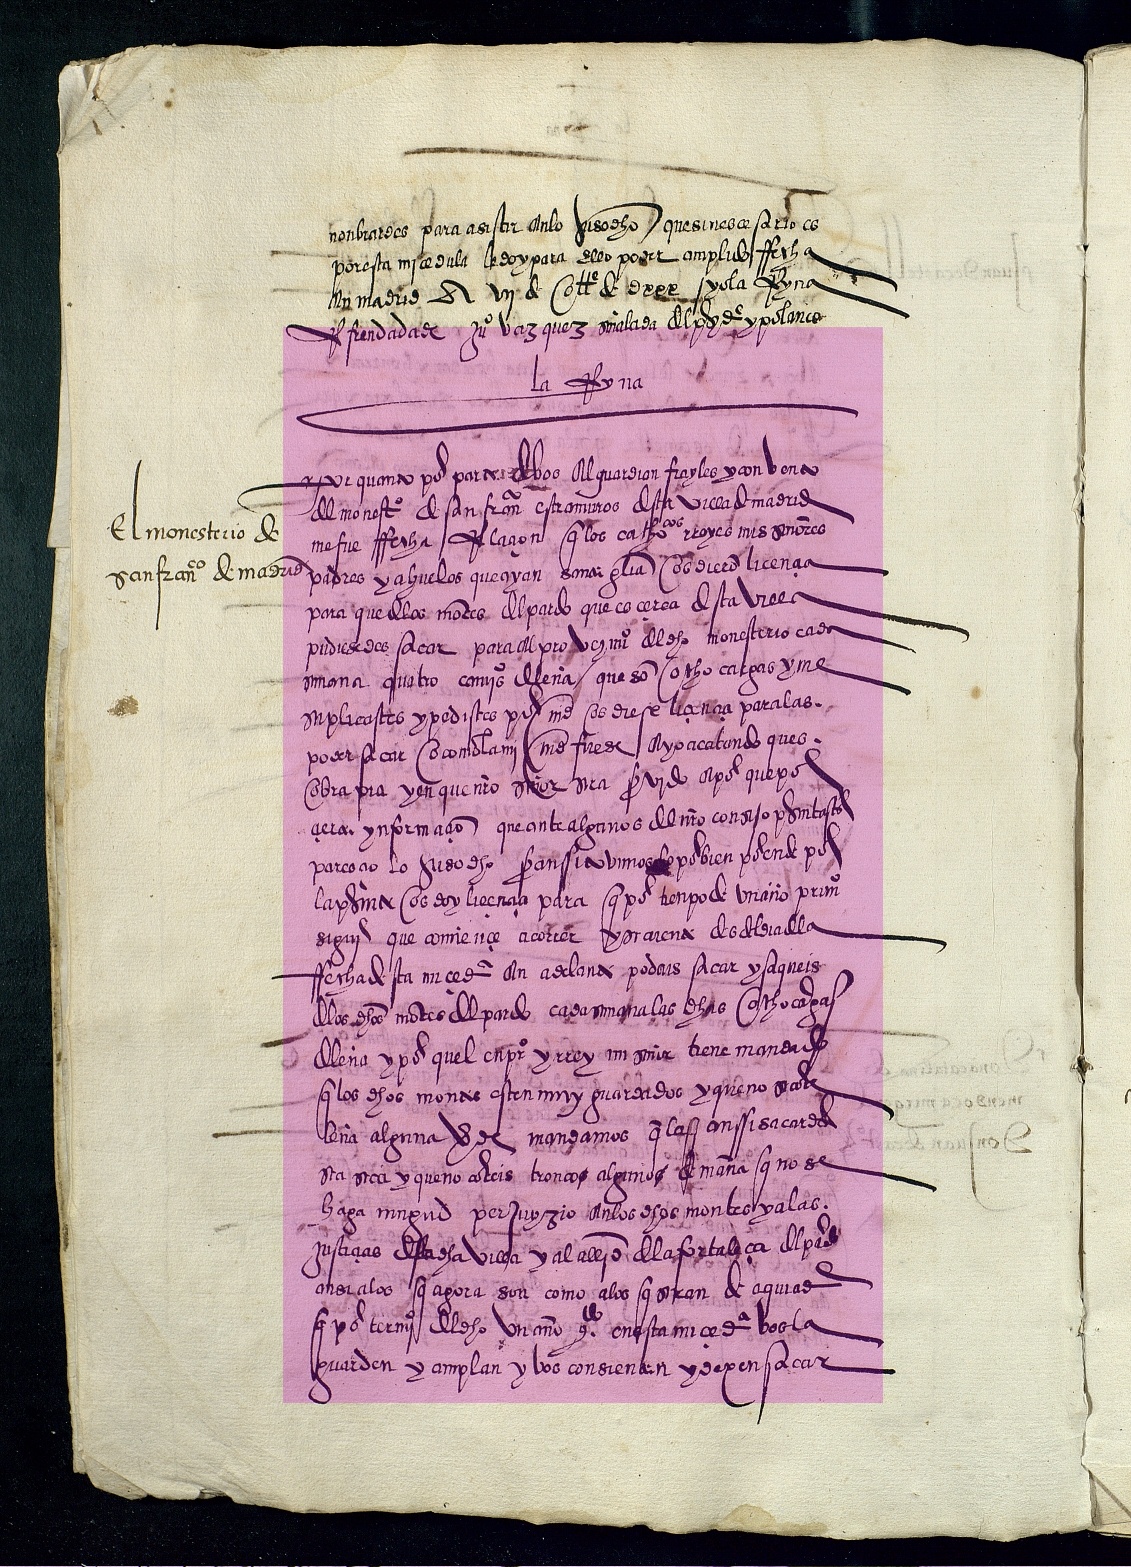 nonbrardes para asistir en lo susodho que si nescesario es
por esta mi cedula le doy para ello poder cunplido ffecha
en madrid A vij de otte de dxxx yo la Reyna
Refrendada de juº vazquez señalada del
la Reyna
El monesterio de
san franco de madrid
por quanto por parte de bos el guardian frayles y convento
del monestº de san franco estramuros desta villa de madrid
me fue ffecha Relaçion q los catholicos rreyes mis señores
padres y ahuelos que ayan santa gloria os dieron liçençia
para que de los montes del pardo que es çerca desta villa
pudiesedes sacar para el proveymiº del dho monesterio cada
semana quatro caminos de leña que son ocho cargas y me
suplicastes y pedistes por md os diese liçençia para las
poder sacar o como la mi md fuese E yo acatando ques
obra pia y en que nro señor sera servido E por que por
çierta ynformaçion que ante algunos del nro consejo presentastes
pareçio lo susodho ser anssi tuvimoslo por bien por ende por
la presente os doy liçençia para q por tienpo de un año primº
siguiente que comiençe a correr y se cuente desdel dia de la
ffecha desta mi cedª en adelante podais sacar y saqueis
de los dhos montes del pardo cada semana las dhas ocho cargas
de leña y por quel enpor y rrey mi señor tiene mandado
q los dhos montes esten muy guardados y que no se corte
leña alguna verde mandamos q la q anssi sacardes
sea seca y que no corteis troncos algunos de manª q no se
haga ningund perjuyzio en los dhos montes y a las
justiçias desta dha villa y al alcaide de la fortaleça del pardo
ansi a los q agora son como a los q seran de aqui adelante
q por termiº del dho un año qº en esta mi cedª bos la
guarden y cunplan y bos consientan y dexen sacar